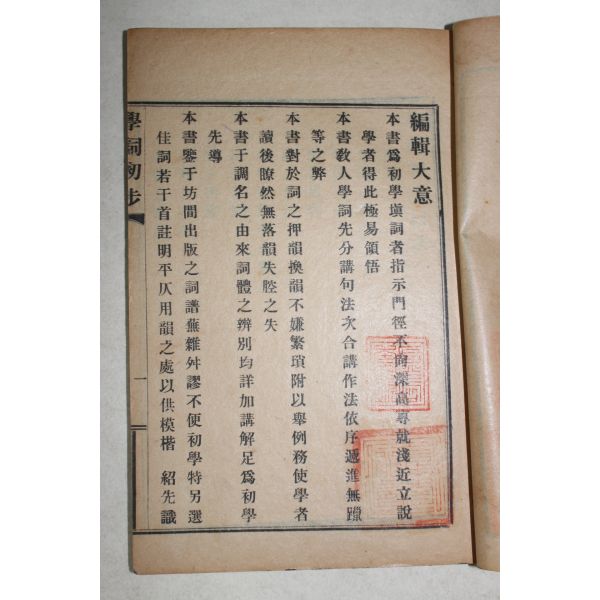 編輯大意
本書爲初學塡詞者指示門徑不向深高尋就淺近立說
學者得此極易領悟
本書敎人學詞先分講句法次合講作法依序遞進無躐
等之弊
本書對於詞之押韻換韻不嫌繁瑣附以舉例務使學者
讀後瞭然無落韻失腔之失
本書于調名之由來詞體之辨別均詳加講解足爲初學
先導
本書鑒于坊間出版之詞譜蕪雜舛謬不便初學特另選
佳詞若干首註明平仄用韻之處以供模楷 紹先識
學詞初步
一